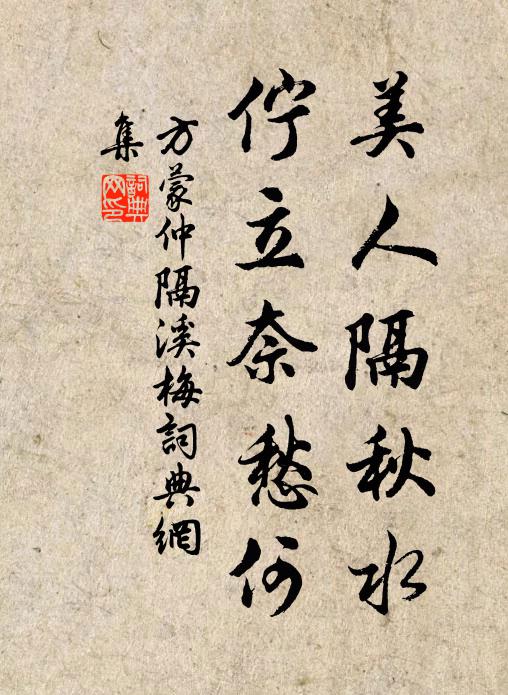 美人隔秋水
佇立奈愁何
方蒙仲隔溪梅詞典網
集
詞典
网印